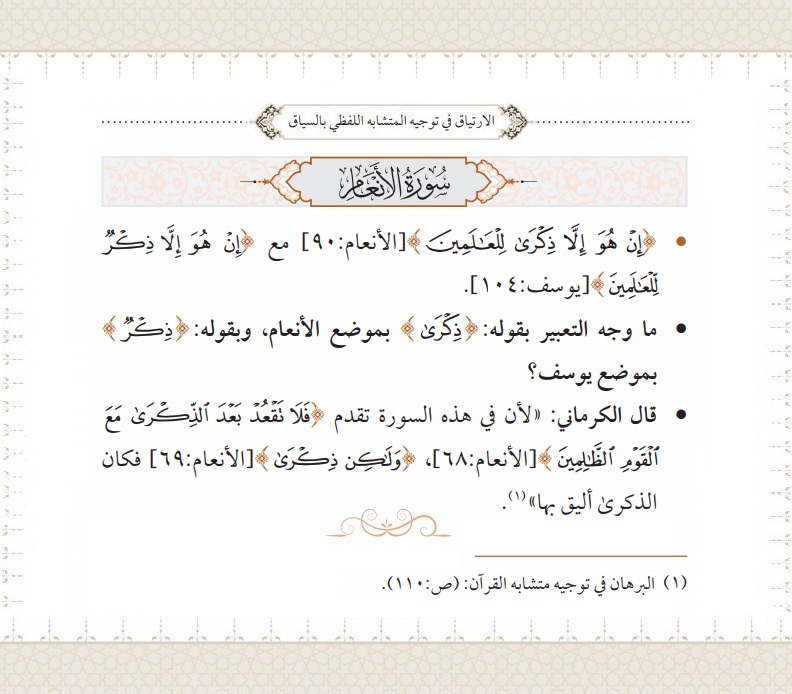 الارتياق في توجيه المتشابه اللفظي بالسياق
سُورَةُ الأَنْعَامِ
• ﴿إِنْ هُوَ إِلَّا ذِكْرَىٰ لِلْعَـٰلَمِينَ﴾[الأنعام:٩٠] مع ﴿إِنْ هُوَ إِلَّا ذِكْرٌ
لِّلْعَـٰلَمِينَ﴾[يوسف:١٠٤].
• ما وجه التعبير بقوله:﴿ذِكْرَىٰ﴾ بموضع الأنعام، وبقوله:﴿ذِكْرٌ﴾
بموضع يوسف؟
• قال الكرماني: «لأن في هذه السورة تقدم ﴿فَلَا تَقْعُدْ بَعْدَ ٱلذِّكْرَىٰ مَعَ
ٱلْقَوْمِ ٱلظَّـٰلِمِينَ﴾[الأنعام:٦٨]، ﴿وَلَـٰكِن ذِكْرَىٰ﴾[الأنعام:٦٩] فكان
الذكرىٰ أليق بها»(١).
(١) البرهان في توجيه متشابه القرآن: (ص:١١٠).